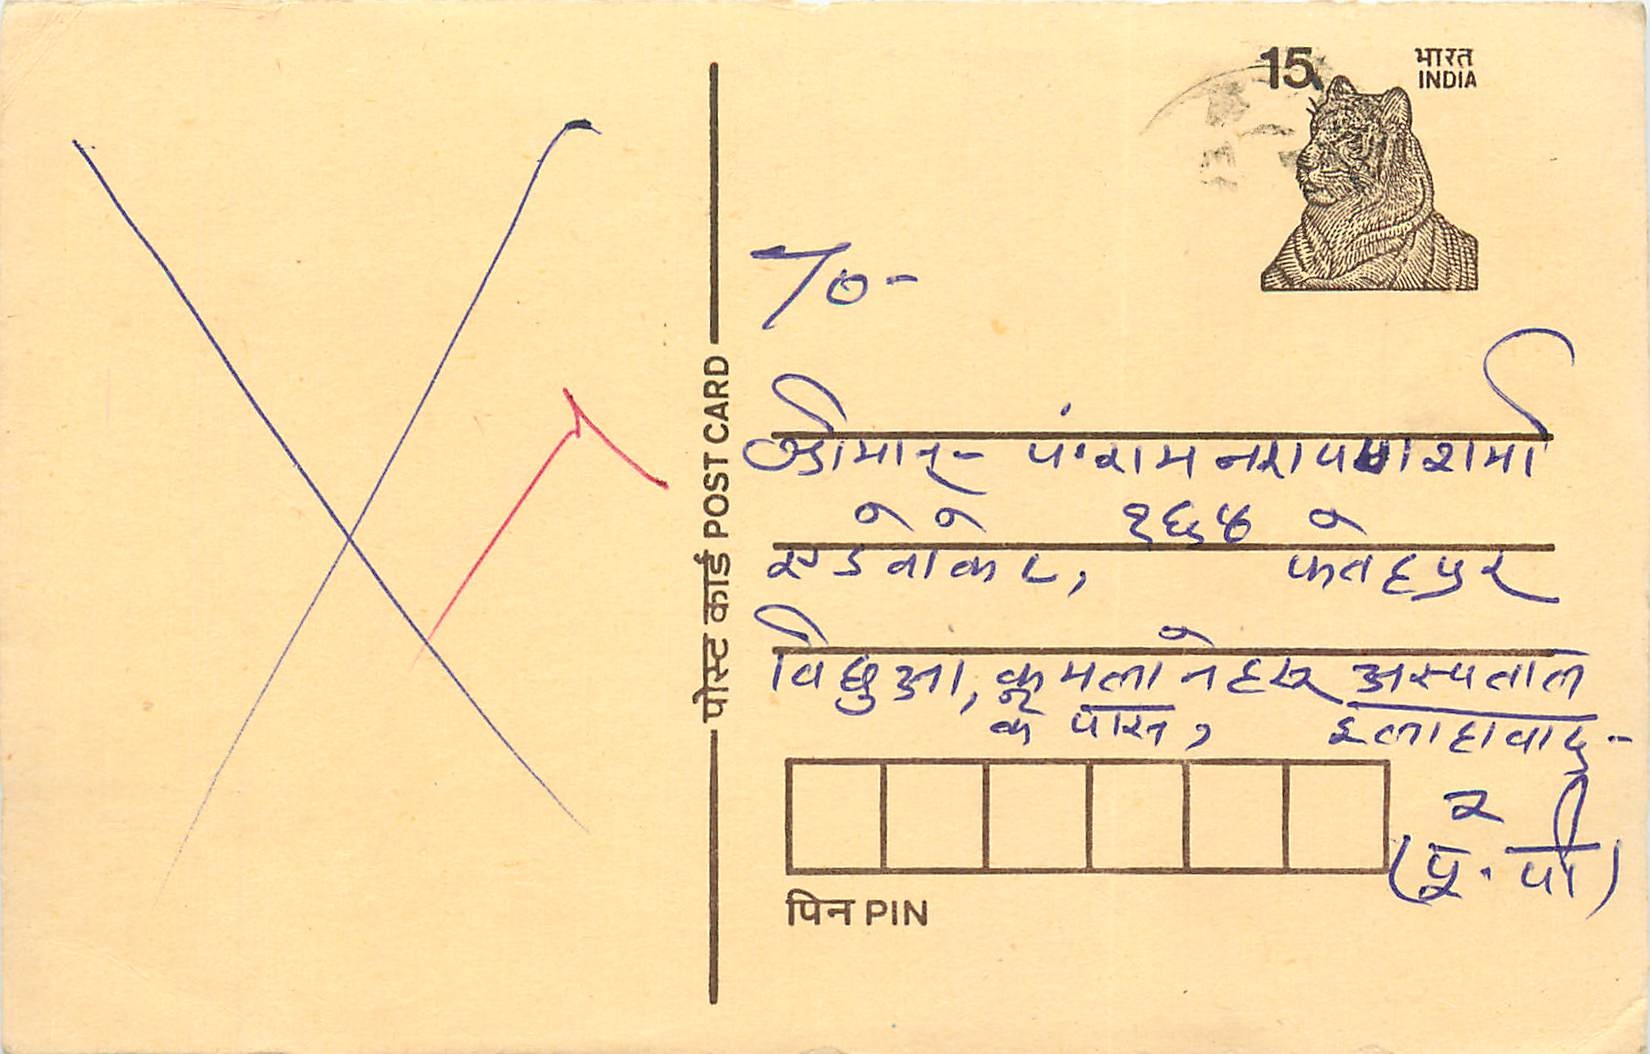 15 भारत
INDIA
पोस्ट कार्ड POST CARD
To-
श्रीमान्- पं. राम नरायण शर्मा
एडवोकेट, १६४ फतेहपुर
विछुआ, कमला नेहरू अस्पताल
के पास, इलाहावाद-
२
(यू. पी)
पिन PIN